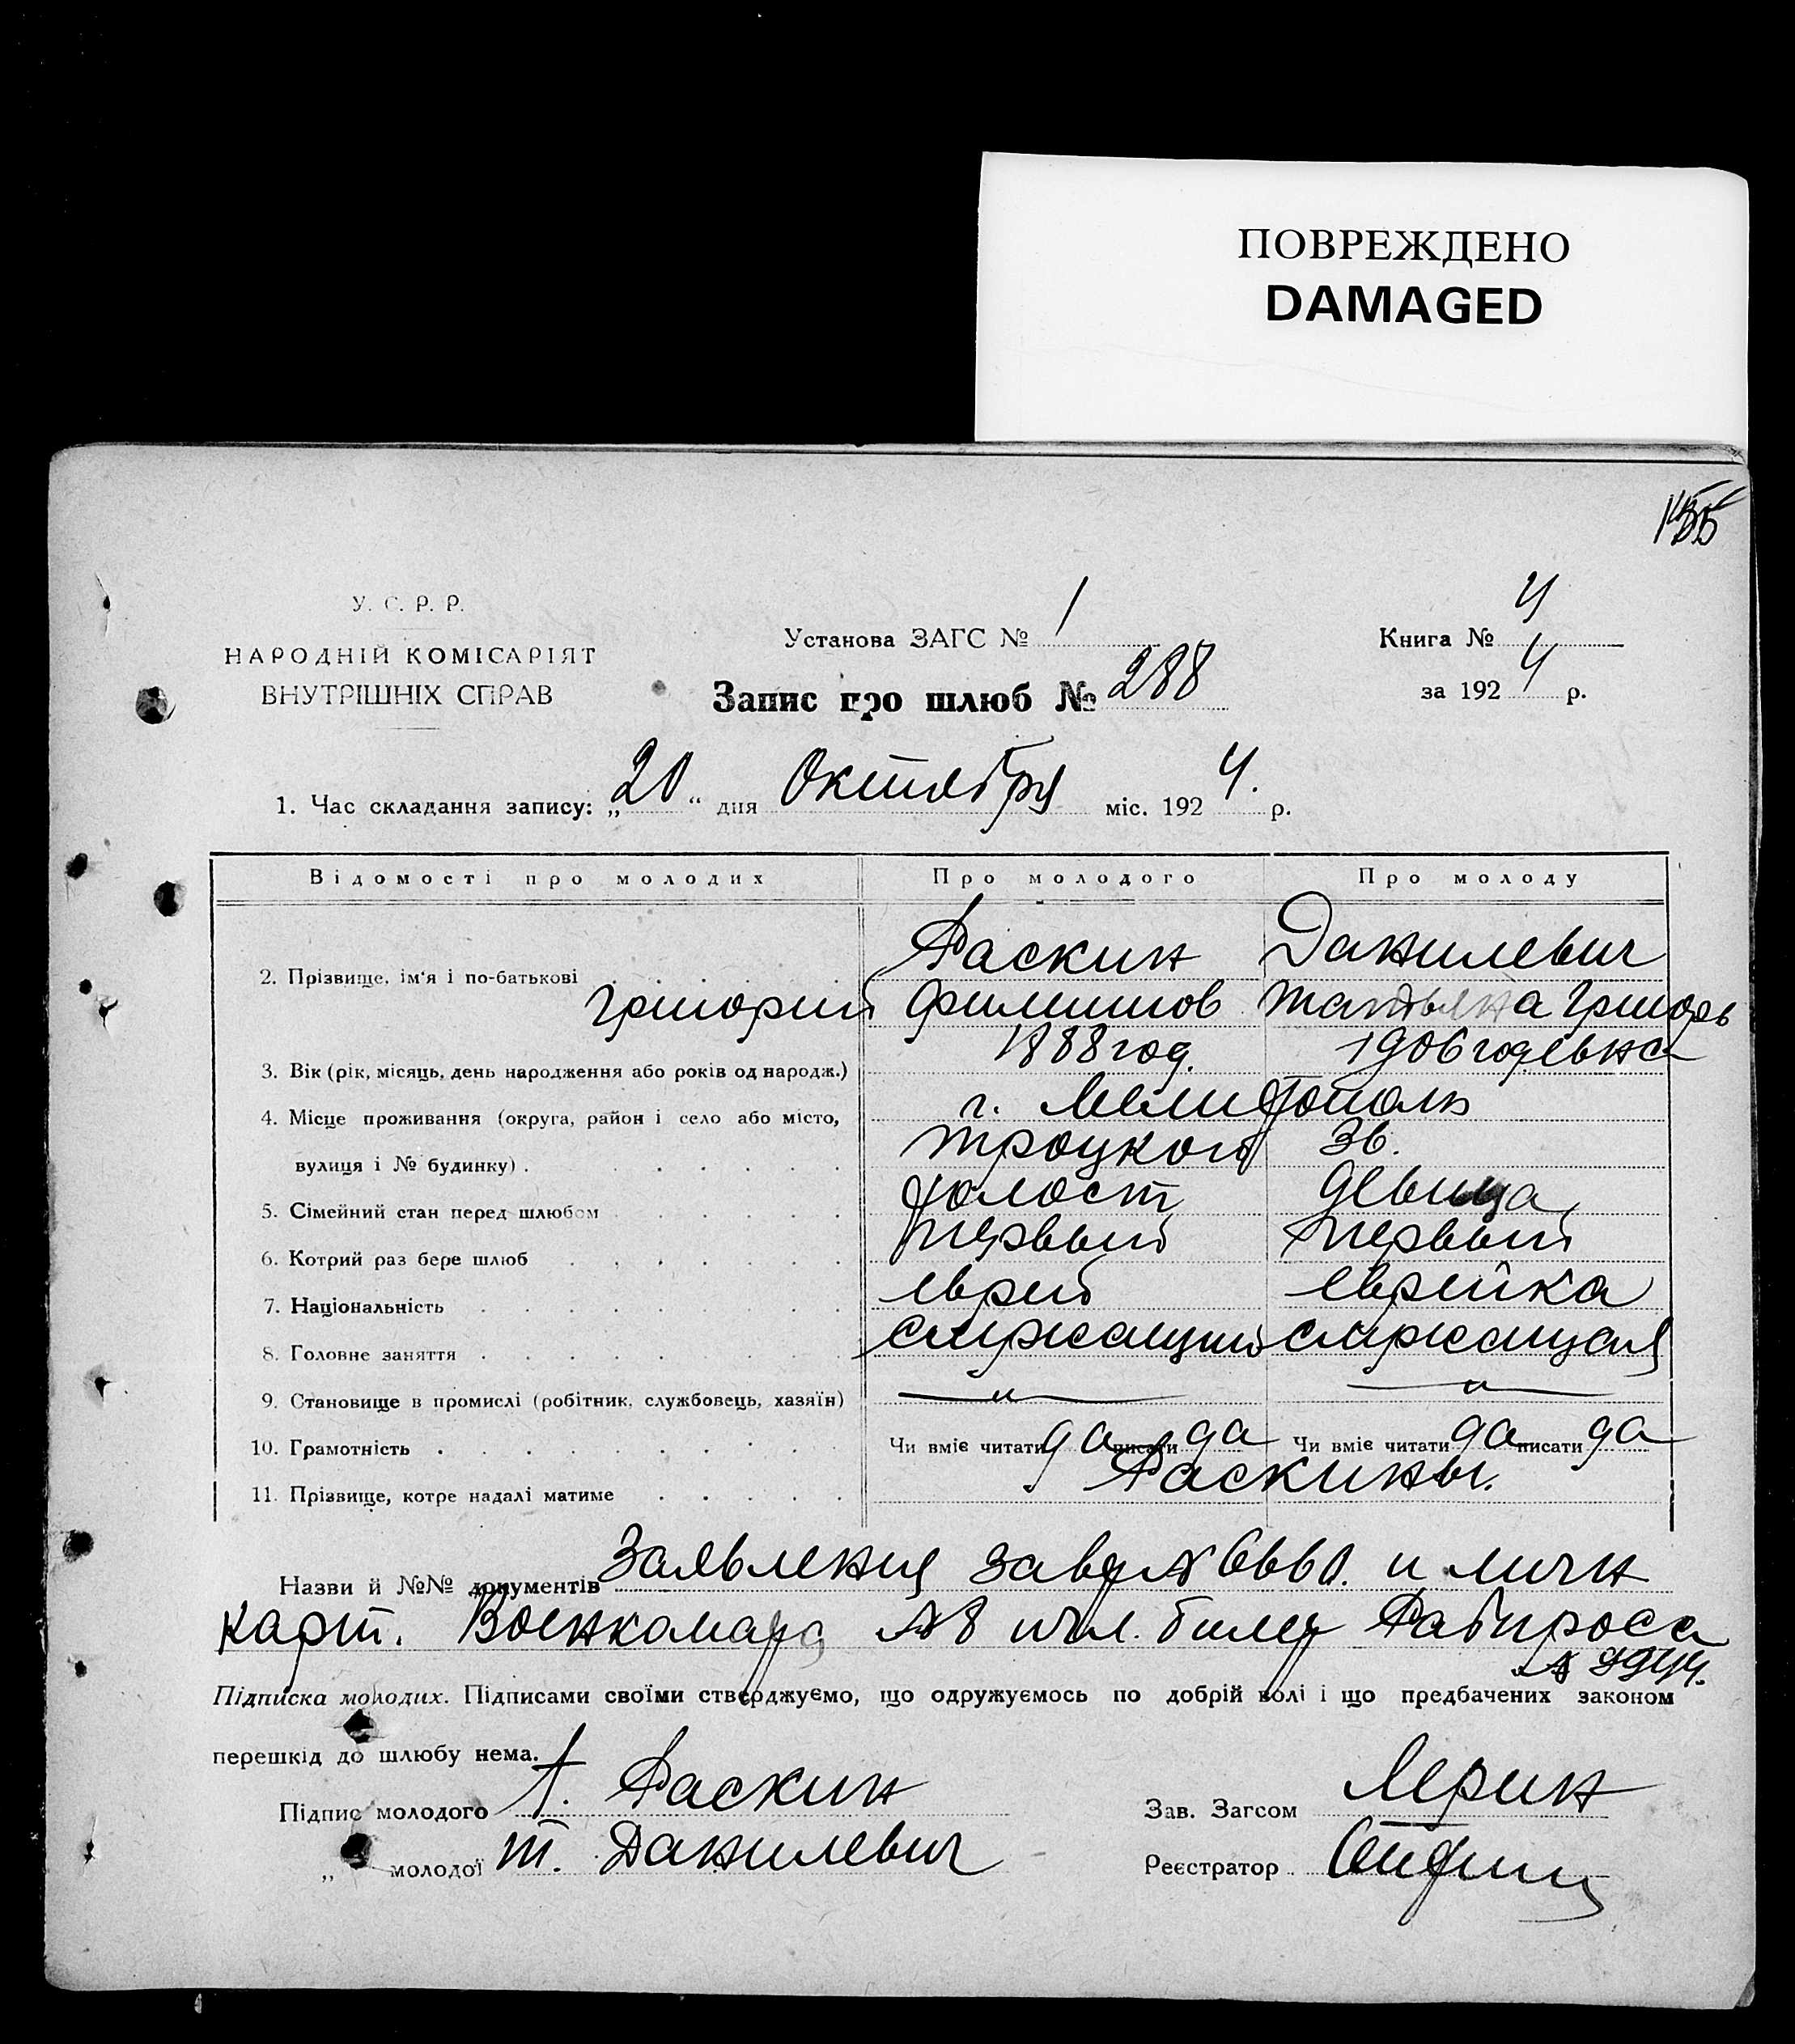 ПОВРЕЖДЕНО
DAMAGED
У. С. Р. Р.
НАРОДНІЙ КОМІСАРІЯТ
ВНУТРІШНІХ СПРАВ
Установа ЗАГС № 1
Книга № 4
Запис про шлюб № 288
за 1924 р.
1. Час складання запису: „20“ дня Октября міс. 1924. р.
Відомості про молодих Про молодого Про молоду
2. Прізвище, ім'я і по-батькові Раскин Данилевич
Григорий Филиппов Татьяна Григорь
3. Вік (рік, місяць, день народження або років од народж.) 1888 год. 1906 год евна
4. Місце проживання (округа, район і село або місто, г. Мелитополь
вулиця і № будинку) . Троцкого 36.
5. Сімейний стан перед шлюбом холост девица
6. Котрий раз бере шлюб первый первый
7. Національність еврей еврейка
8. Головне заняття служащий служащая
9. Становище в промислі (робітник, службовець, хазяїн) — „ — — „ —
10. Грамотність Чи вміє читати да писати да Чи вміє читати да писати да
11. Прізвище, котре надалі матиме Раскины.
Назви й №№ документів Заявления № 6660. и личн
карт. Военкомата № 8 чл. билет Рабпроса
№
Підписка молодих. Підписами своїми стверджуємо, що одружуємось по добрій волі і що предбачених законом
перешкід до шлюбу нема.
Підпис молодого Раскин Зав. Загсом
„ молодої Т. Данилевич Реєстратор